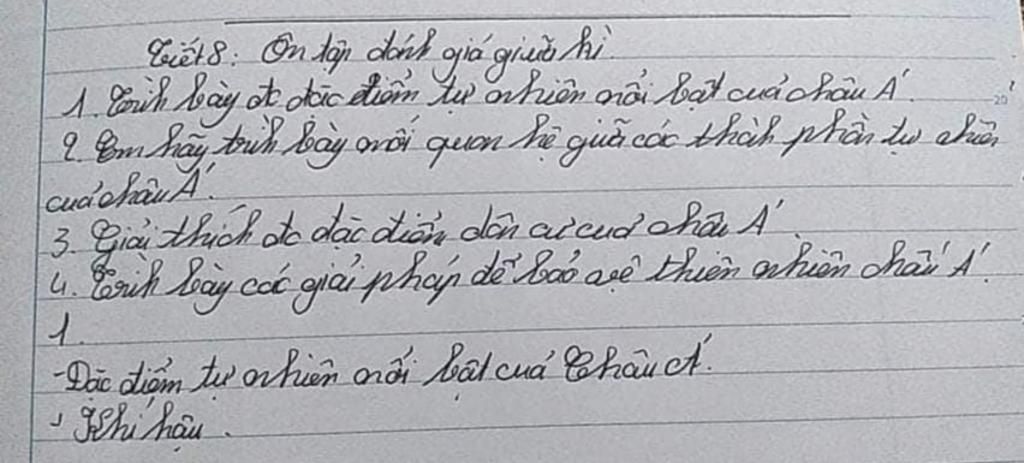 Tiết 8: Ôn tập đánh giá giữa kì
1. Trình bày đc đặc điểm tự nhiên nổi bật của châu Á.
2. Em hãy trình bày mối quan hệ giữa các thành phần tự nhiên
của châu Á.
3. Giải thích đc đặc điểm dân cư của châu Á.
4. Trình bày các giải pháp để bảo vệ thiên nhiên châu Á.
1.
-Đặc điểm tự nhiên nổi bật của Châu Á.
Khí hậu.